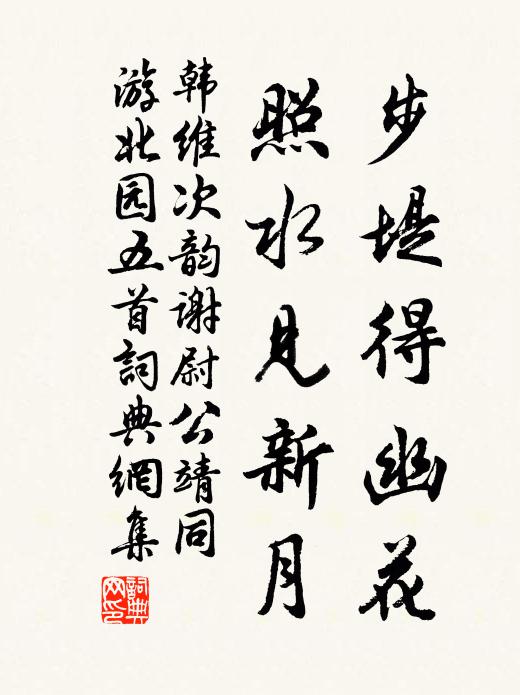 步堤得幽花
照水見新月
韩維次韵謝尉公靖同
游北园五首詞典網集
詞典
网印